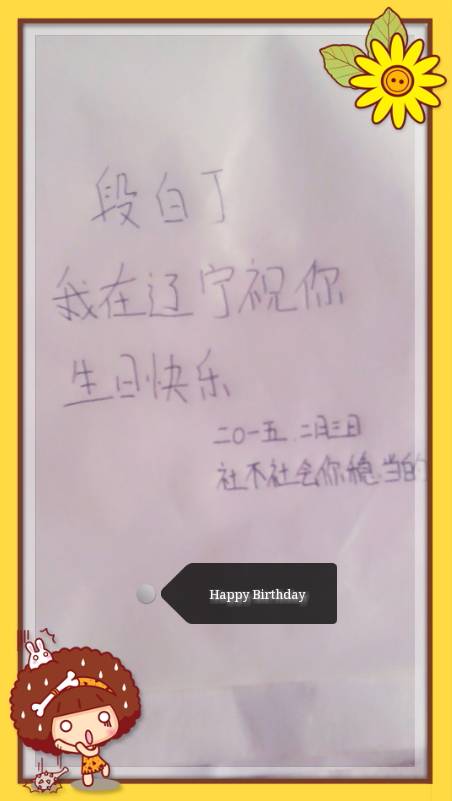 段白丁
我在辽宁祝你
生日快乐
二〇一五.二月三日
社不社会你稳当的
Happy Birthday